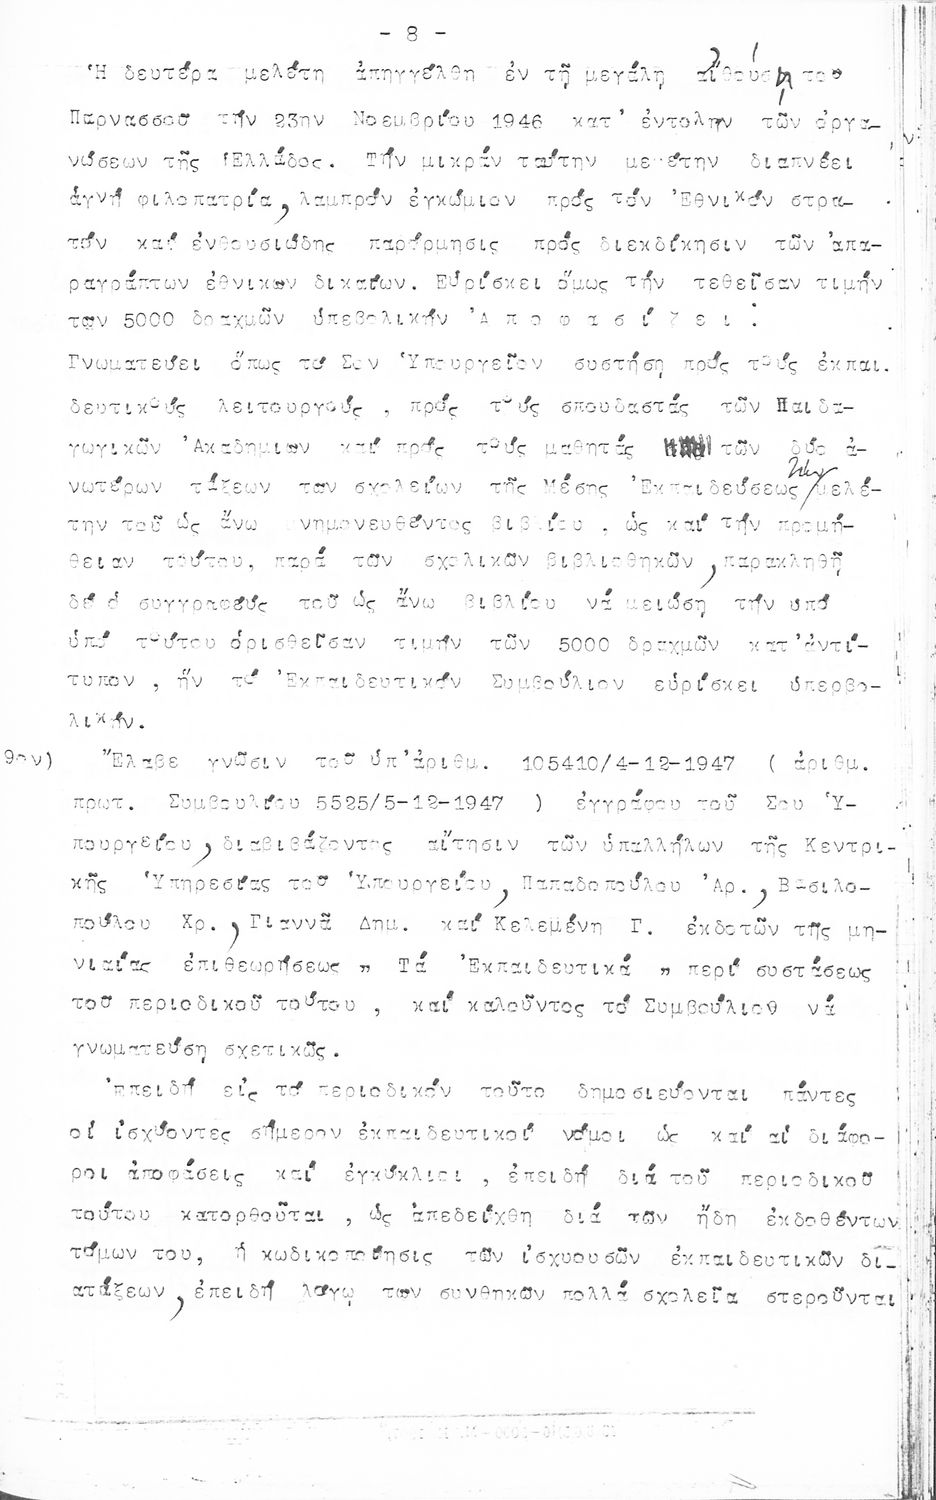 - 8 -
Ἡ δευτέρα μελέτη ἀπηγγέλθη ἐν τῇ μεγάλῃ αἰθούσῃ του
Παρνασσοῦ τήν 23ην Νοεμβρίου 1946 κατ' ἐντολην τῶν ὀργα-
νώσεων τῆς Ἑλλάδος. Τήν μικράν ταύτην μελέτην διαπνέει
ἁγνή φιλοπατρία, λαμπρόν ἐγκώμιον πρός τόν Ἐθνικόν στρα-
τόν καί ἐνθουσιώδης παρόρμησις πρός διεκδίκησιν τῶν ἀπα-
ραγράπτων ἐθνικων δικαίων. Εὑρίσκει ὅμως τήν τεθεῖσαν τιμήν
των 5000 δραχμῶν ὑπεβολικήν Ἀ π ο φ α σ ί ζ ε ι :
Γνωματεύει ὅπως τό Σον Ὑπουργεῖον συστήσῃ πρός τούς ἐκπαι.
δευτικούς λειτουργούς , πρός τούς σπουδαστάς τῶν Παιδα-
γωγικῶν Ἀκαδημιων καί πρός τούς μαθητάς τῶν δύο ἀ-
νωτέρων τάξεων των σχολείων τῆς Μέσης Ἐκπαιδεύσεως τήν μελέ-
την τοῦ ὡς ἄνω μνημονευθέντος βιβλίου , ὡς καί τήν προμή-
θειαν τούτου, παρά των σχολικῶν βιβλιοθηκῶν , παρακληθῇ
δέ ὁ συγγραφεύς τοῦ ὡς ἄνω βιβλίου νά μειώσῃ τήν ὑπό
ὑπό τούτου ὁρισθεῖσαν τιμήν τῶν 5000 δραχμῶν κατ'ἀντί-
τυπον , ἥν τό Ἐκπαιδευτικόν Συμβούλιον εὑρίσκει ὑπερβο-
λικήν.
9ον) Ἔλαβε γνῶσιν τοῦ ὑπ'ἀριθμ. 105410/4-12-1947 ( ἀριθμ.
πρωτ. Συμβουλίου 5525/5-12-1947 ) ἐγγράφου τοῦ Σου Ὑ-
πουργείου , διαβιβάζοντος αἴτησιν τῶν ὑπαλλήλων τῆς Κεντρι-
κῆς Ὑπηρεσίας τοῦ Ὑπουργείου , Παπαδοπούλου Ἀρ. , Βασιλο-
πούλου Χρ. , Γιαννᾶ Δημ. καί Κελεμένη Γ. ἐκδοτῶν τῆς μη-
νιαίας ἐπιθεωρήσεως „ Τά Ἐκπαιδευτικά „ περί συστάσεως
τοῦ περιοδικοῦ τούτου , καί καλοῦντος τό Συμβούλιον νά
γνωματεύσῃ σχετικῶς.
Ἐπειδή εἰς τό περιοδικόν τοῦτο δημοσιεύονται πάντες
οἱ ἰσχύοντες σήμερον ἐκπαιδευτικοί νόμοι ὡς καί αἱ διάφο-
ροι ἀποφάσεις καί ἐγκύκλιοι , ἐπειδή διά τοῦ περιοδικοῦ
τούτου κατορθοῦται , ὡς ἀπεδείχθη διά των ἤδη ἐκδοθέντων
τόμων του, ἡ κωδικοποίησις τῶν ἰσχυουσῶν ἐκπαιδευτικῶν δι-
ατάξεων , ἐπειδή λόγῳ των συνθηκῶν πολλά σχολεῖα στεροῦνται